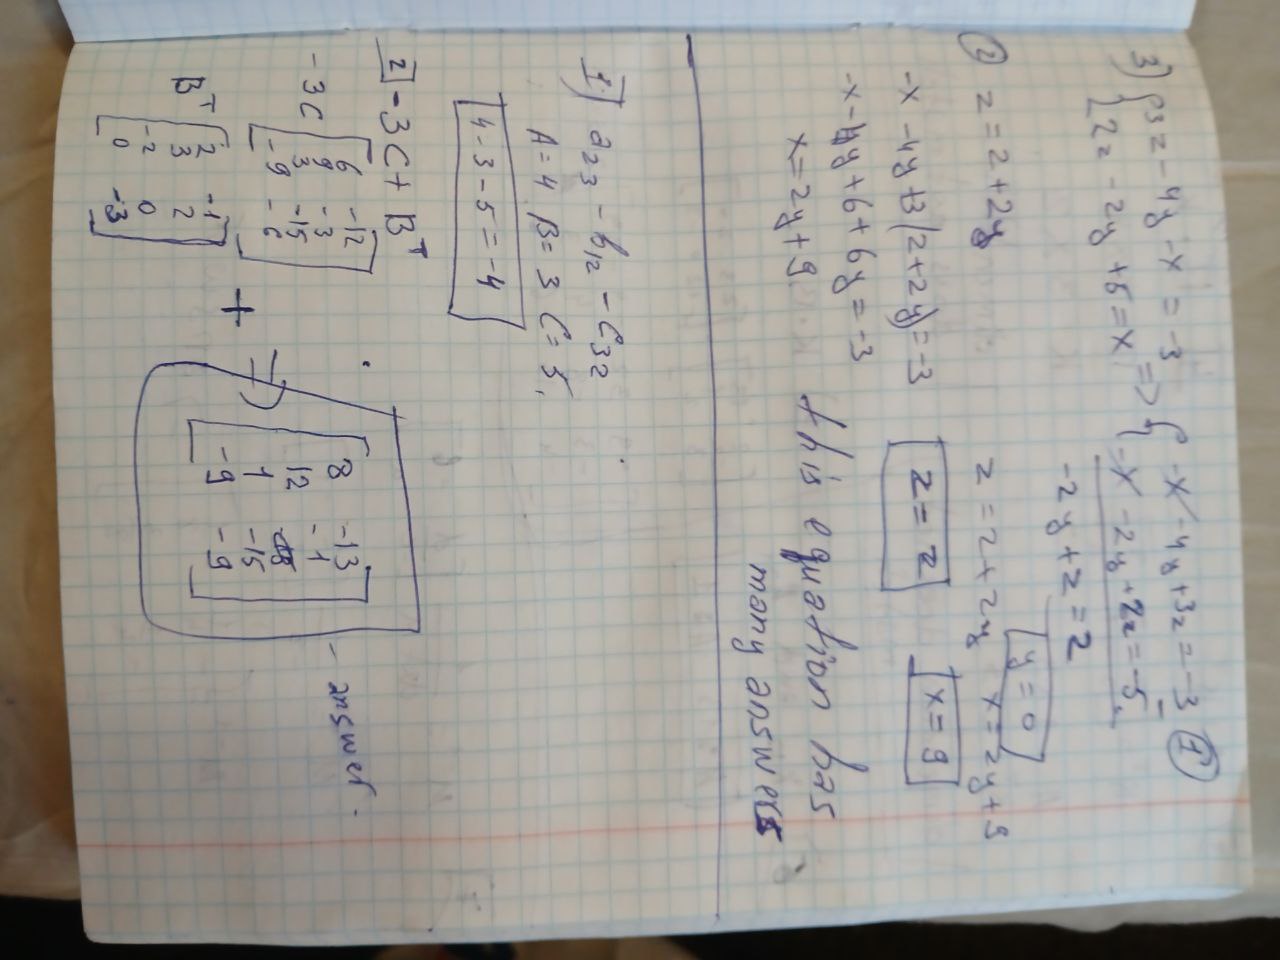 3) { 3z - 4y - x = -3
2z - 2y + 6 = x => { -x - 4y + 3z = -3 (1)
-x - 2y + 2z = -5
-2y + z = 2
(2) z = 2 + 2y
z = 2 + 2y
y = 0
x = 2y + 9
-x - 4y + 3(2 + 2y) = -3
z = 2
x = 9
-x - 4y + 6 + 6y = -3
x = 2y + 9
this equation has
many answers
1) a₂₃ - b₁₂ - c₃₂
A = 4 B = 3 C = 5
4 - 3 - 5 = -4
2) -3C + Bᵀ
-3C [ 6 -12
9 -3
3 -15
-9 -6 ]
+
Bᵀ [ 2 -1
3 2
-2 0
0 -3 ]
=> [ 8 -13
12 -1
1 -15
-9 -9 ]
- answer.